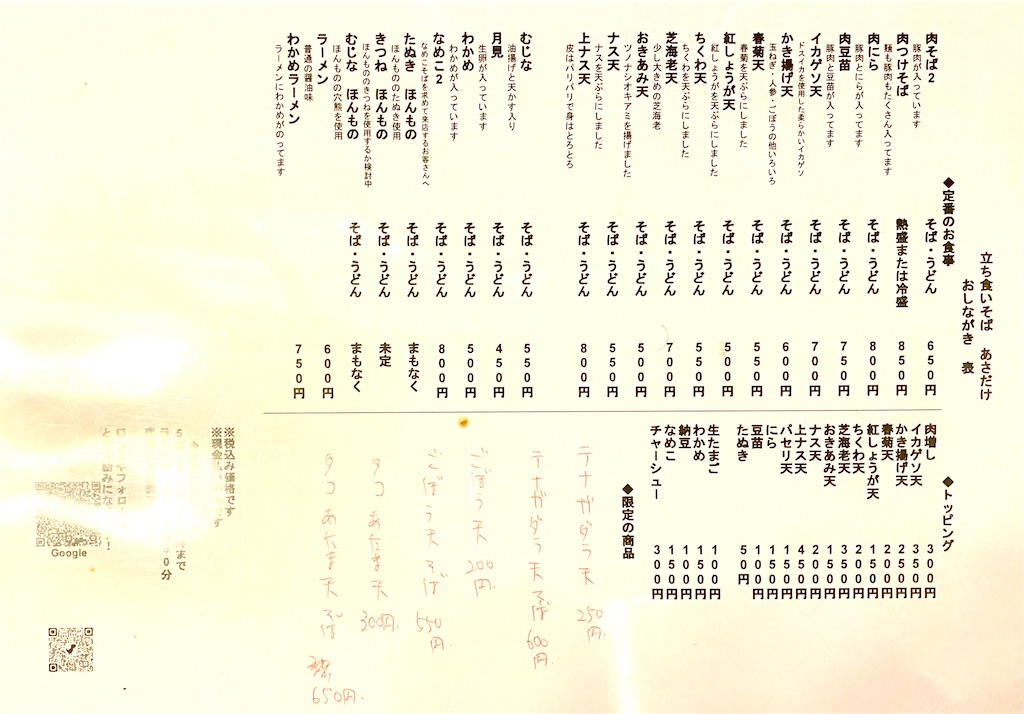 立ち食いそば　あさだけ
おしながき　表
◆定番のお食事
肉そば2　そば・うどん　650円
豚肉が入っています
肉つけそば　熱盛または冷盛　850円
麺も豚肉もたくさん入ってます
肉にら　そば・うどん　800円
豚肉とにらが入ってます
肉豆苗　そば・うどん　750円
豚肉と豆苗が入ってます
イカゲソ天　そば・うどん　700円
ドスイカを使用した柔らかいイカゲソ
かき揚げ天　そば・うどん　600円
玉ねぎ・人参・ごぼうの他いろいろ
春菊天　そば・うどん　550円
春菊を天ぷらにしました
紅しょうが天　そば・うどん　500円
紅しょうがを天ぷらにしました
ちくわ天　そば・うどん　550円
ちくわを天ぷらにしました
芝海老天　そば・うどん　700円
少し大きめの芝海老
おきあみ天　そば・うどん　500円
ツノナシオキアミを揚げました
ナス天　そば・うどん　550円
ナスを天ぷらにしました
上ナス天　そば・うどん　800円
皮はパリパリで身はとろとろ
むじな　そば・うどん　550円
油揚げと天かす入り
月見　そば・うどん　450円
生卵が入っています
わかめ　そば・うどん　500円
わかめが入っています
なめこ2　そば・うどん　800円
なめこそばを求めて来店するお客さんへ
たぬき　ほんもの　そば・うどん　まもなく
ほんもののたぬき使用
きつね　ほんもの　そば・うどん　未定
ほんもののきつねを使用するか検討中
むじな　ほんもの　そば・うどん　まもなく
ほんものの穴熊を使用
ラーメン　600円
普通の醤油味
わかめラーメン　750円
ラーメンにわかめがのってます
◆トッピング
肉増し　300円
イカゲソ天　350円
かき揚げ天　250円
春菊天　200円
紅しょうが天　150円
ちくわ天　200円
芝海老天　350円
おきあみ天　150円
ナス天　200円
上ナス天　450円
パセリ天　150円
にら　150円
豆苗　100円
たぬき　50円
生たまご　100円
わかめ　150円
納豆　100円
なめこ　150円
チャーシュー　300円
◆限定の商品
テナガダラ天　250円.
テナガダラ天そば　600円.
ごぼう天　200円.
ごぼう天そば　550円.
タコあたま天　300円.
タコあたま天そば　650円.
※税込み価格です
※現金払い
Google